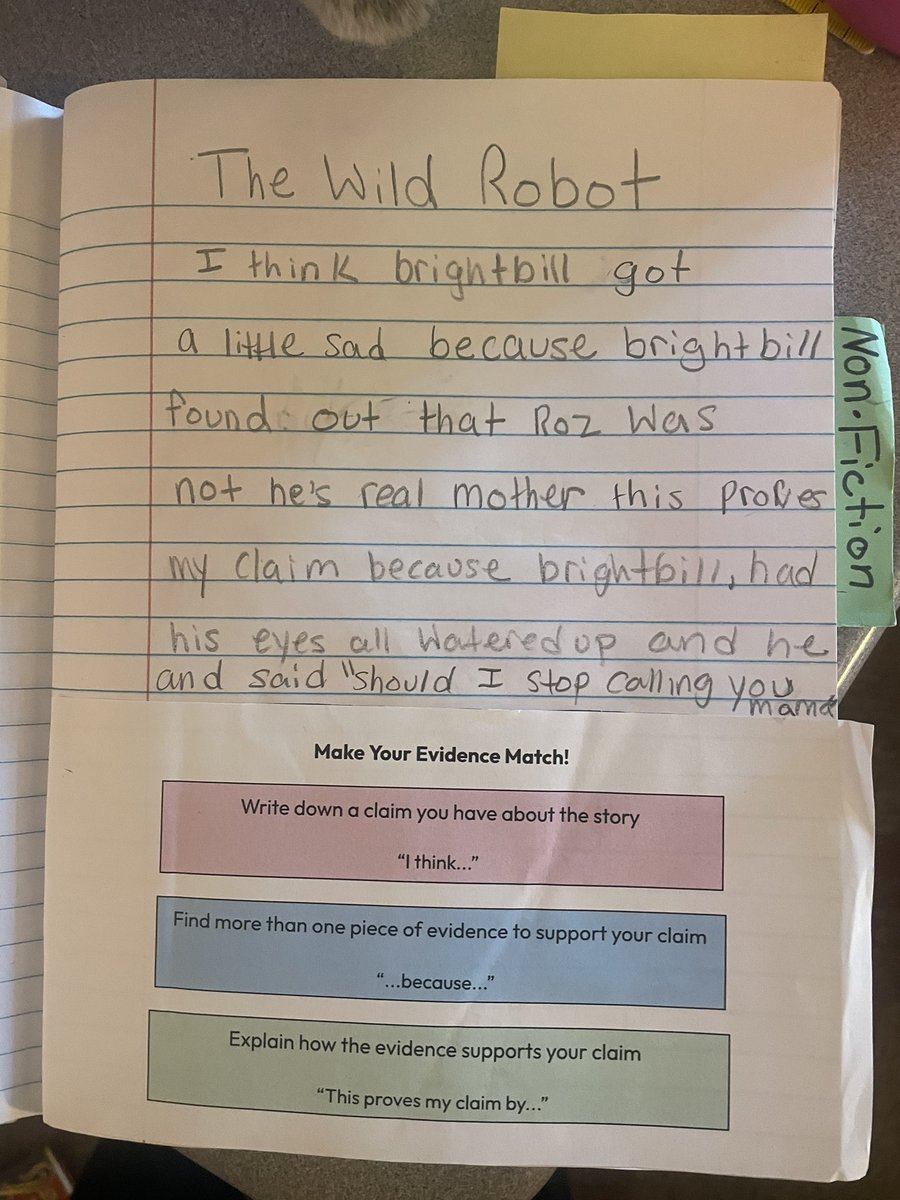 The Wild Robot
I think brightbill got
a little sad because brightbill
found out that Roz was
not he's real mother this proves
my claim because brightbill, had
his eyes all watered up and he
and said "should I stop calling you
mama
Non-Fiction
Make Your Evidence Match!
Write down a claim you have about the story
“I think...”
Find more than one piece of evidence to support your claim
“...because...”
Explain how the evidence supports your claim
“This proves my claim by...”